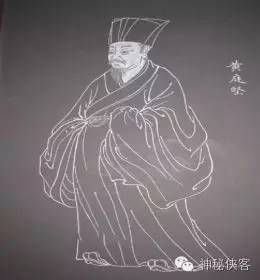 黄庭坚
神秘侠客